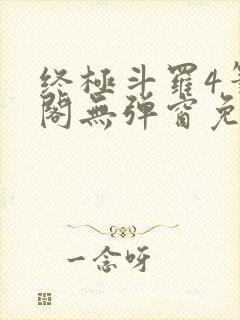 终极斗罗4笔
阁无弹窗免
一念呀